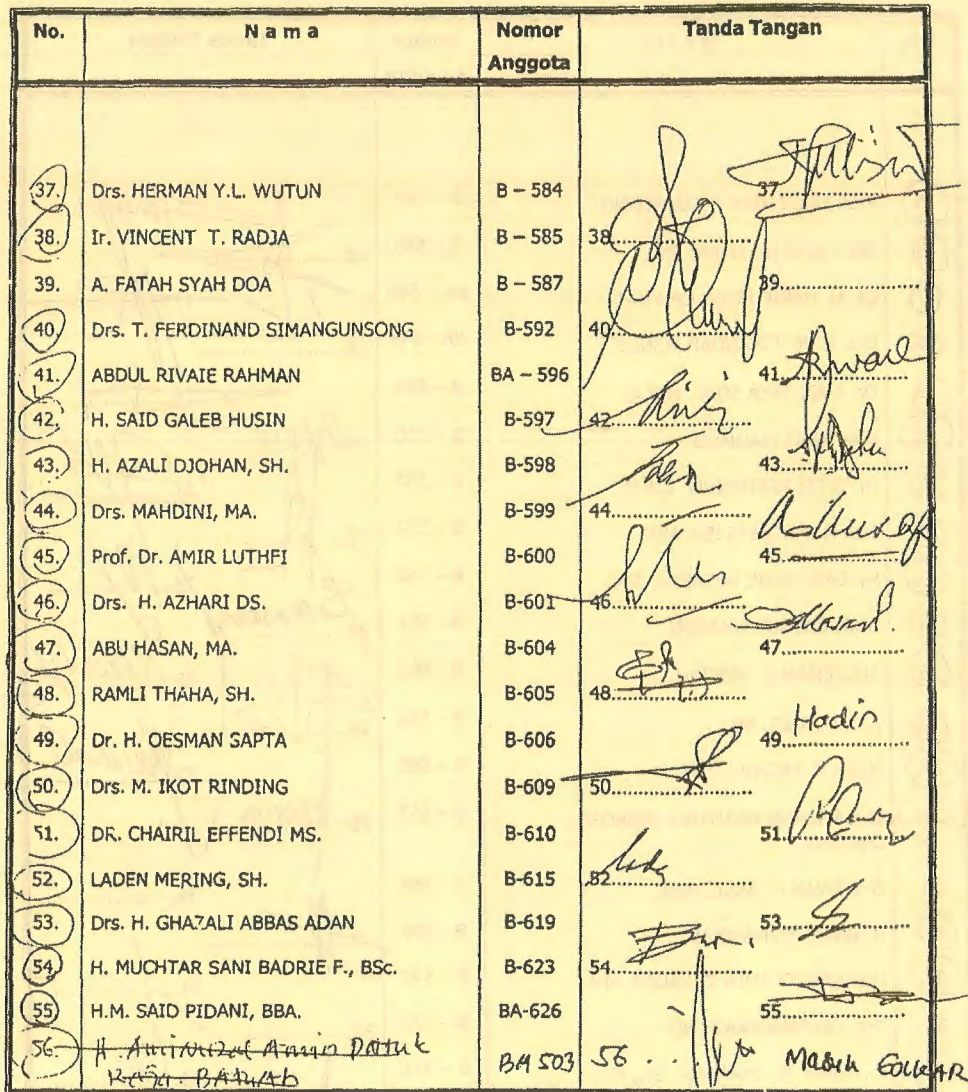 No. N a m a Nomor Anggota Tanda Tangan
37. Drs. HERMAN Y.L. WUTUN B – 584 37
38. Ir. VINCENT T. RADJA B – 585 38
39. A. FATAH SYAH DOA B – 587 39
40. Drs. T. FERDINAND SIMANGUNSONG B-592 40
41. ABDUL RIVAIE RAHMAN BA – 596 41
42. H. SAID GALEB HUSIN B-597 42
43. H. AZALI DJOHAN, SH. B-598 43
44. Drs. MAHDINI, MA. B-599 44
45. Prof. Dr. AMIR LUTHFI B-600 45
46. Drs. H. AZHARI DS. B-601 46
47. ABU HASAN, MA. B-604 47
48. RAMLI THAHA, SH. B-605 48
49. Dr. H. OESMAN SAPTA B-606 49 Hadir
50. Drs. M. IKOT RINDING B-609 50
51. DR. CHAIRIL EFFENDI MS. B-610 51
52. LADEN MERING, SH. B-615 52
53. Drs. H. GHAZALI ABBAS ADAN B-619 53
54. H. MUCHTAR SANI BADRIE F., BSc. B-623 54
55. H.M. SAID PIDANI, BBA. BA-626 55
56. H. Amin BA 503 56 Masuk GOLKAR